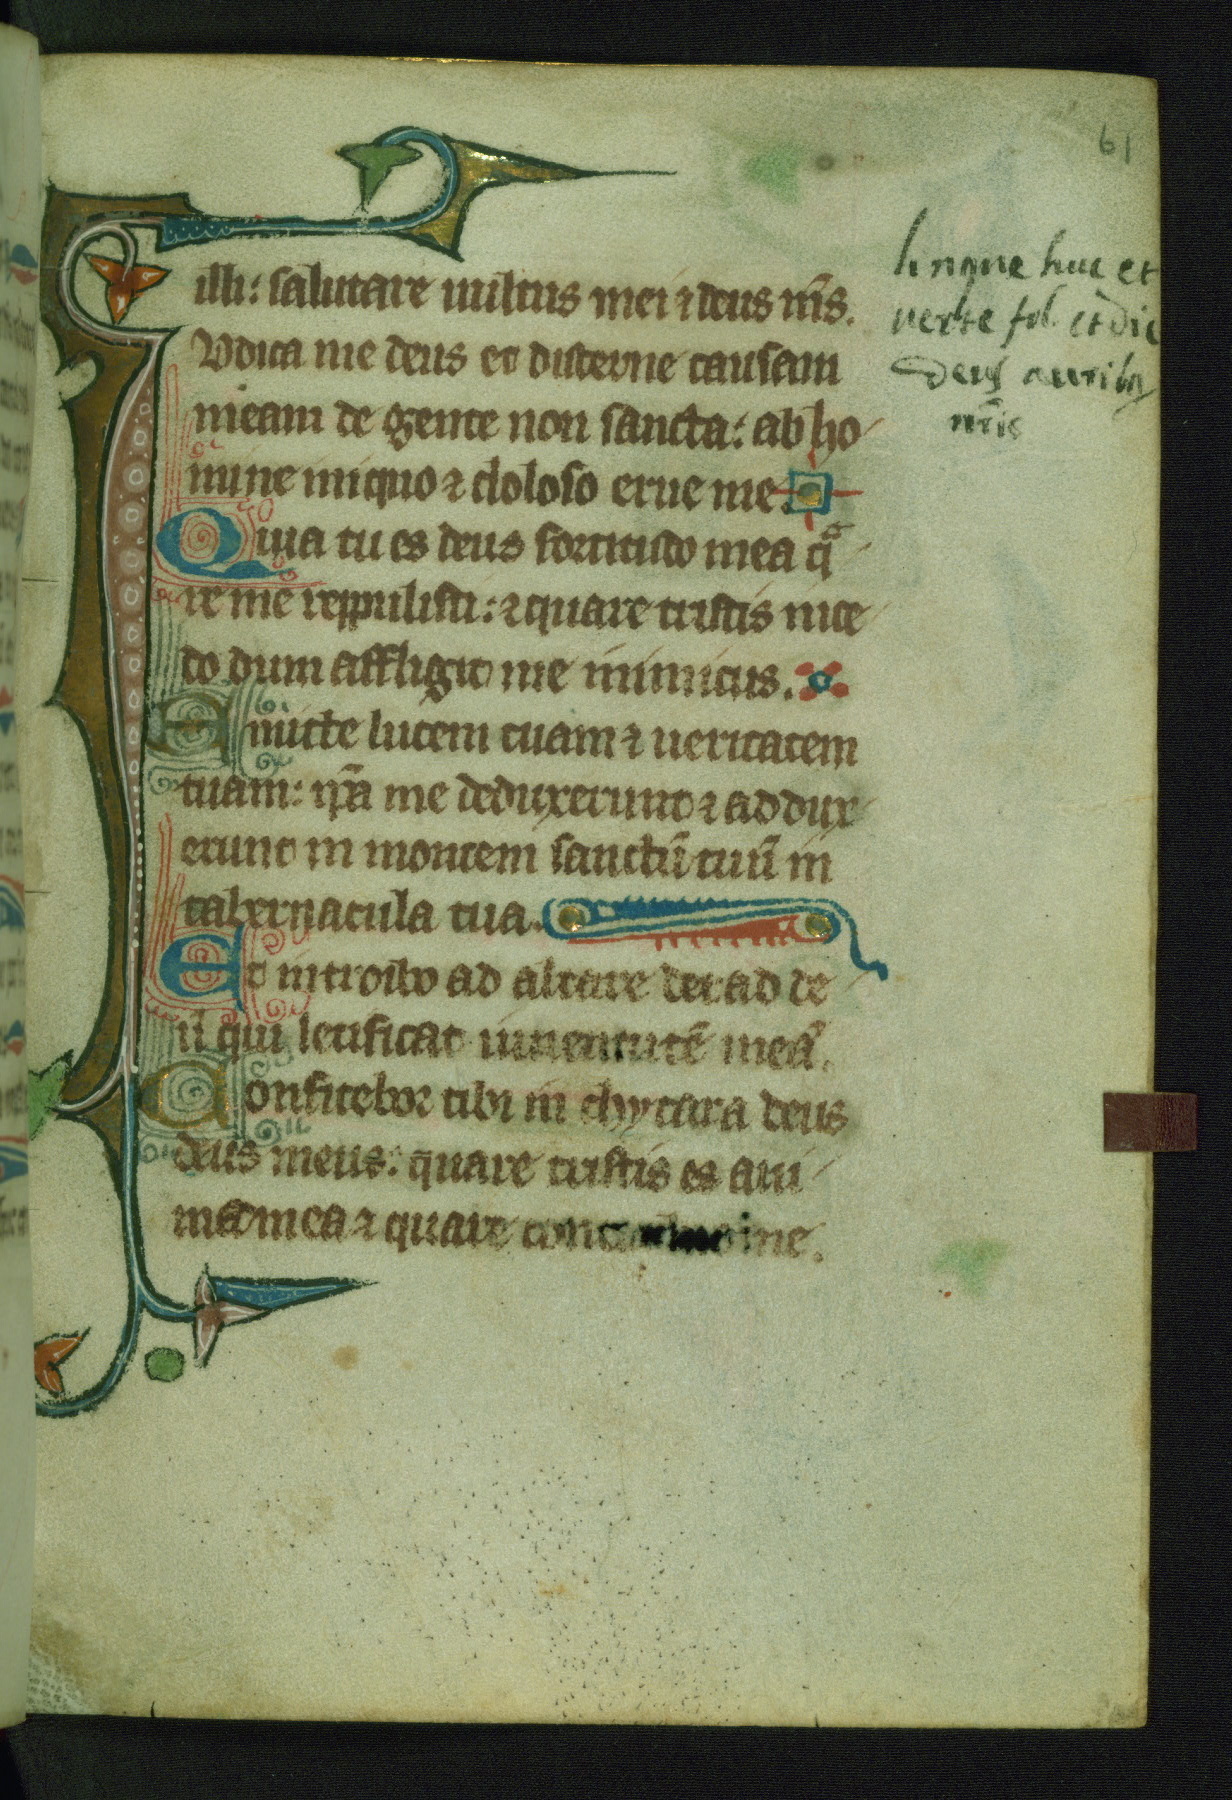 61
illi: salutare uultus mei ⁊ deus mꝰs.
Iudica me deus et discerne causam
meam de gente non sancta: ab ho
mine iniquo ⁊ doloso erue me.
Quia tu es deus fortitudo mea qͣ
re me reppulisti: ⁊ quare tristis ince
do dum affligit me inimicus.
Emitte lucem tuam ⁊ ueritatem
tuam: ip̄a me deduxerunt ⁊ addux
erunt in montem sanctū tuū in
tabernacula tua.
Et introibo ad altare dei: ad de
ū qui letificat iuuentutē meā.
Confitebor tibi in chytara deus
deus meus: quare tristis es ani
ma mea ⁊ quare me.
huc et
uerte fol. et dic
Deus auribꝫ
nr̄is